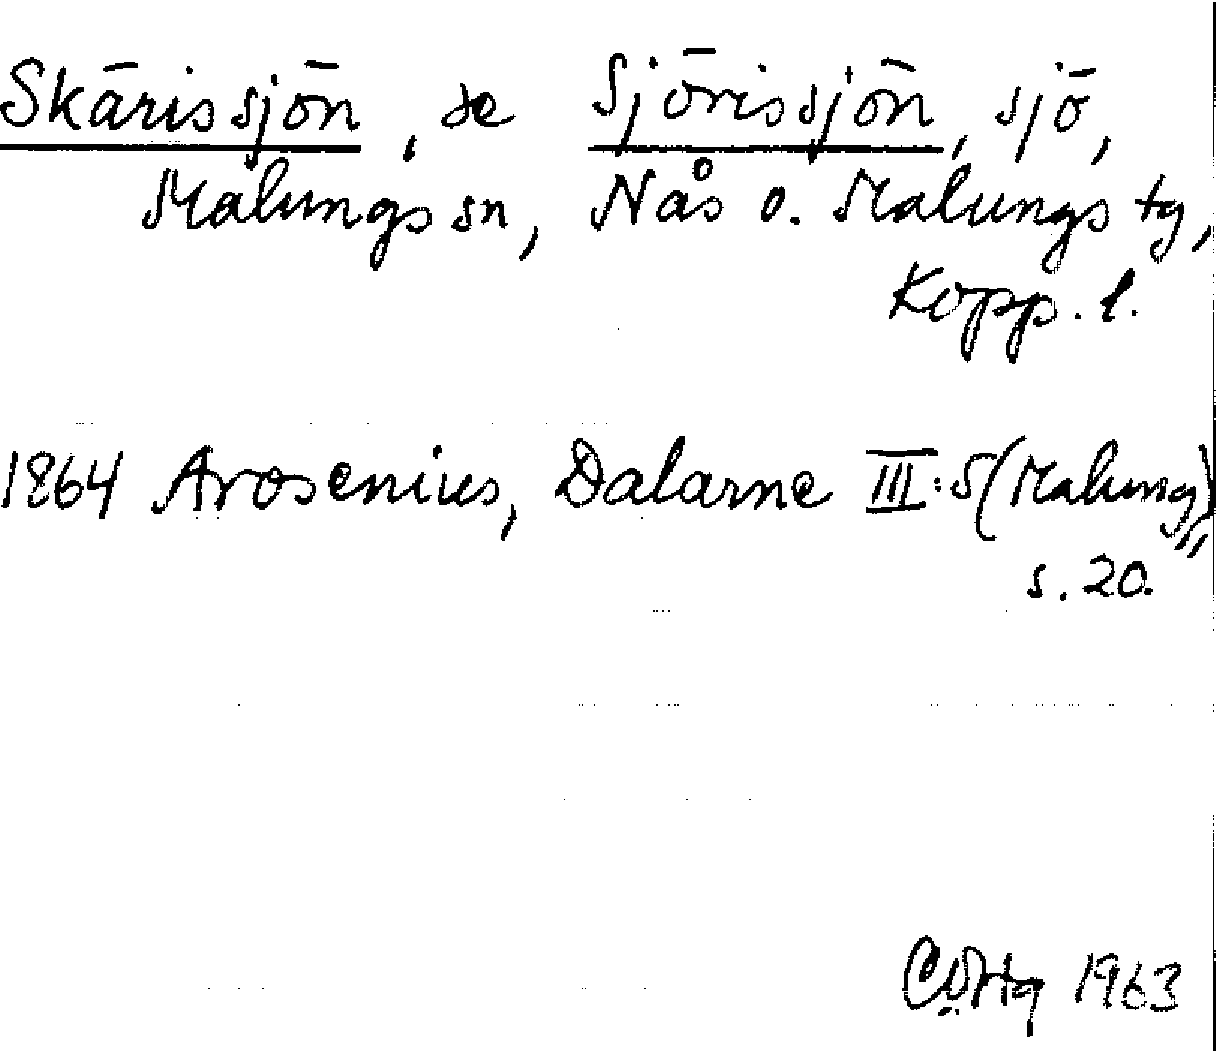 Skärissjön, se Sjörissjön, sjö,
Malungs sn, Nås o. Malungs tg,
Kopp. l.
1864 Arosenius, Dalarne III:5 (Malung)
s. 20.
1963